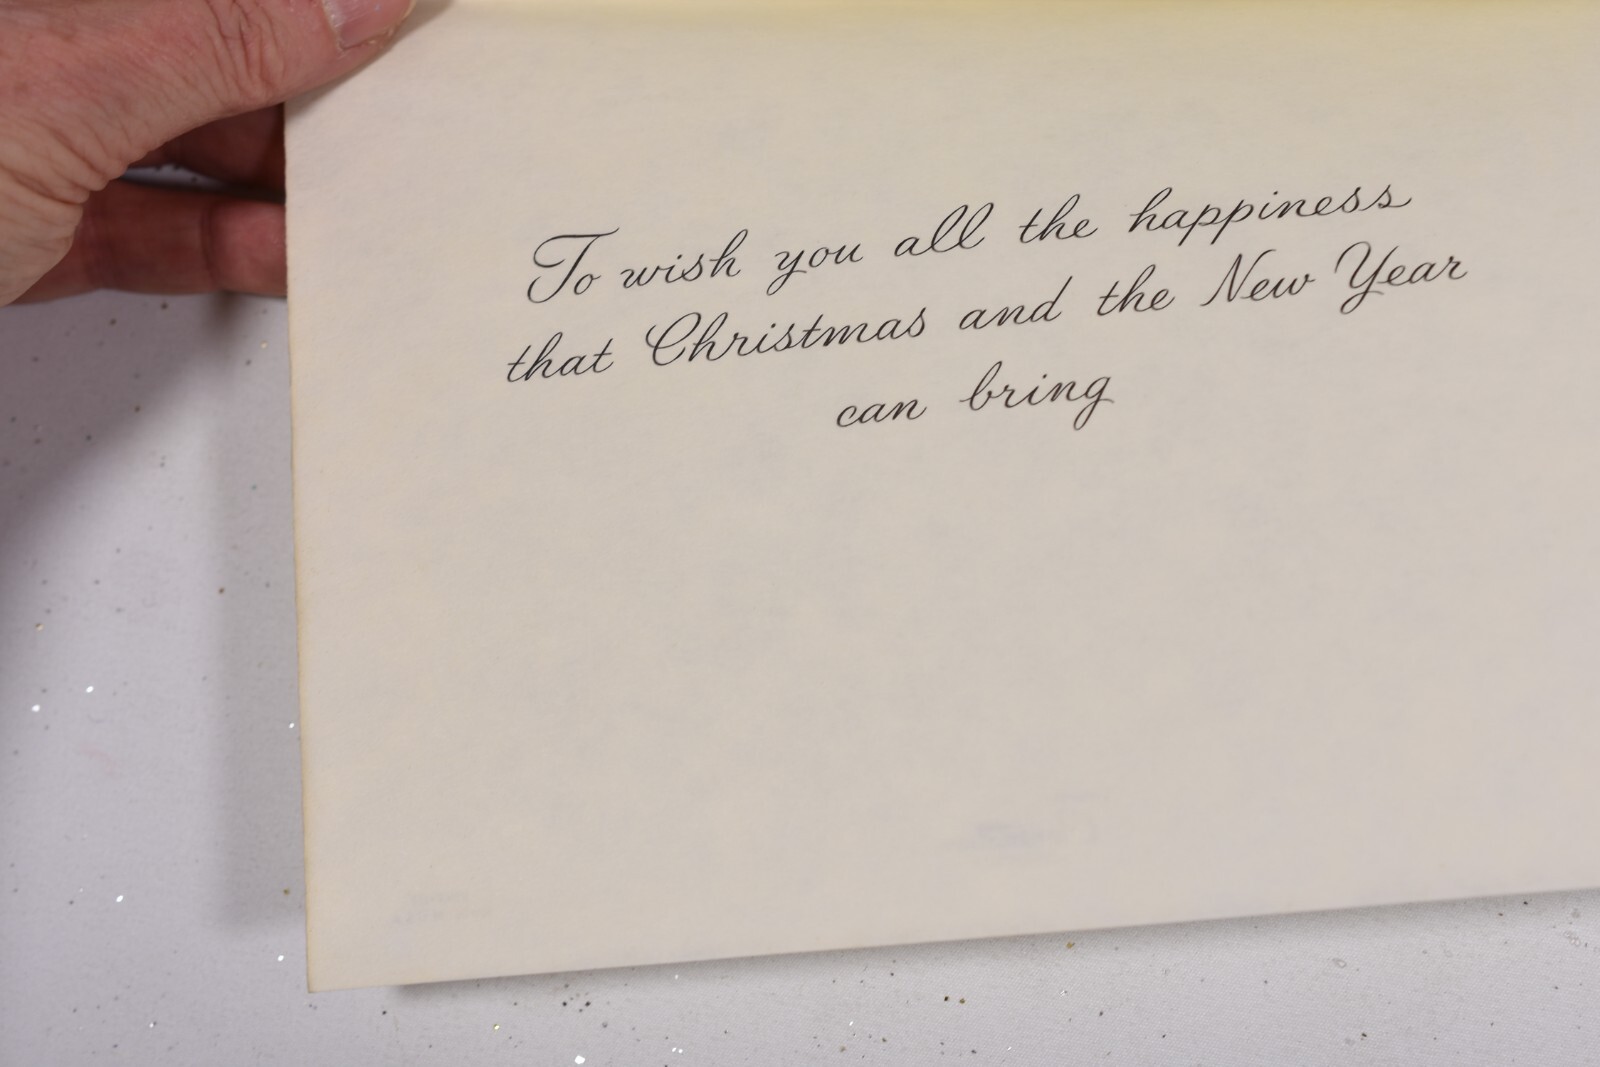 To wish you all the happiness
that Christmas and the New Year
can bring